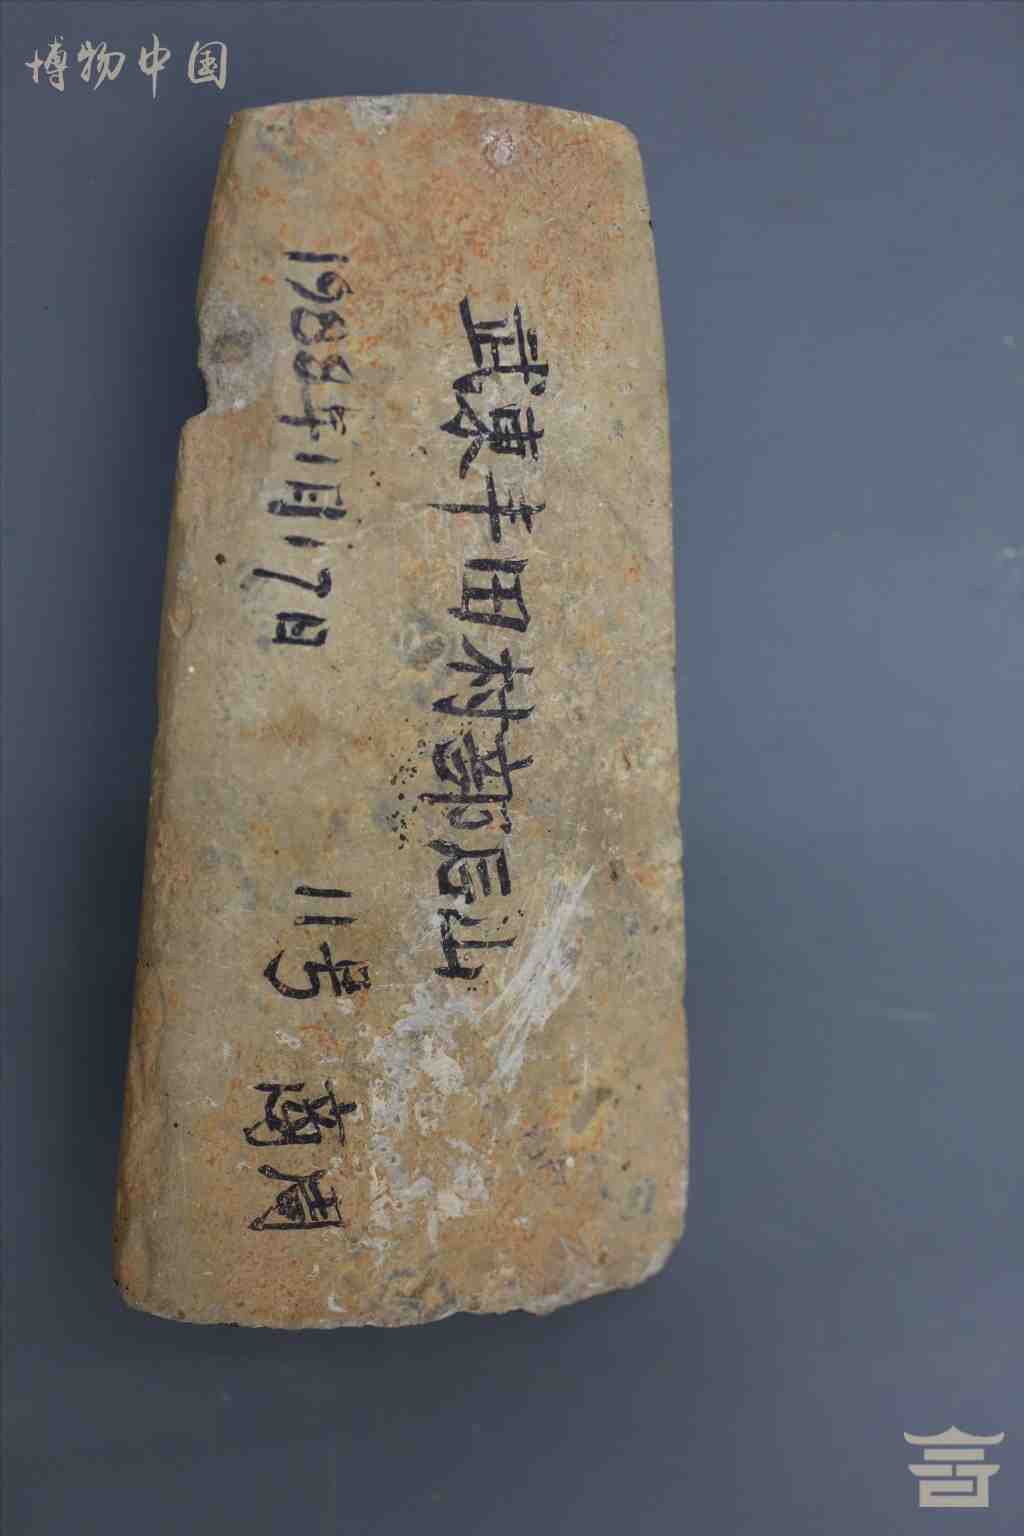 博物中国
武東丰田村部后山
1988年1月17日
11号 商周